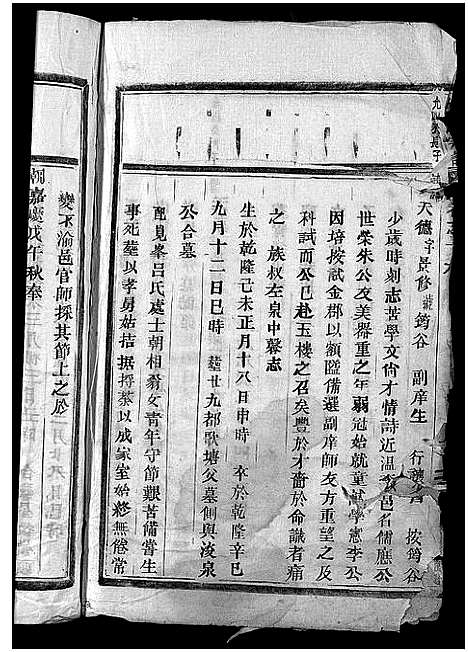 天德 字景修 號筠谷 副庠生 行 按筠谷
少歲時刻志苦學文尙才情詩近溫李邑名儒應公
世榮朱公友美器重之年弱冠始就童試學憲李公
因培按試金郡以額隘備選副庠師友方重望之及
科試而公已赴玉樓之召矣豐於才嗇於命識者痛
之 族叔左泉中馨志
生於乾隆己未正月十八日申時 卒於乾隆辛巳
九月十二日巳時 塟廿九都歌塘父墓側與凌泉
公合墓
配見峯呂氏處士朝相翁女青年守節艱苦備嘗生
事死塟以孝舅姑拮据捋荼以成家室始終無倦常
變不渝邑官師採其節上之於
朝嘉慶戊午秋奉